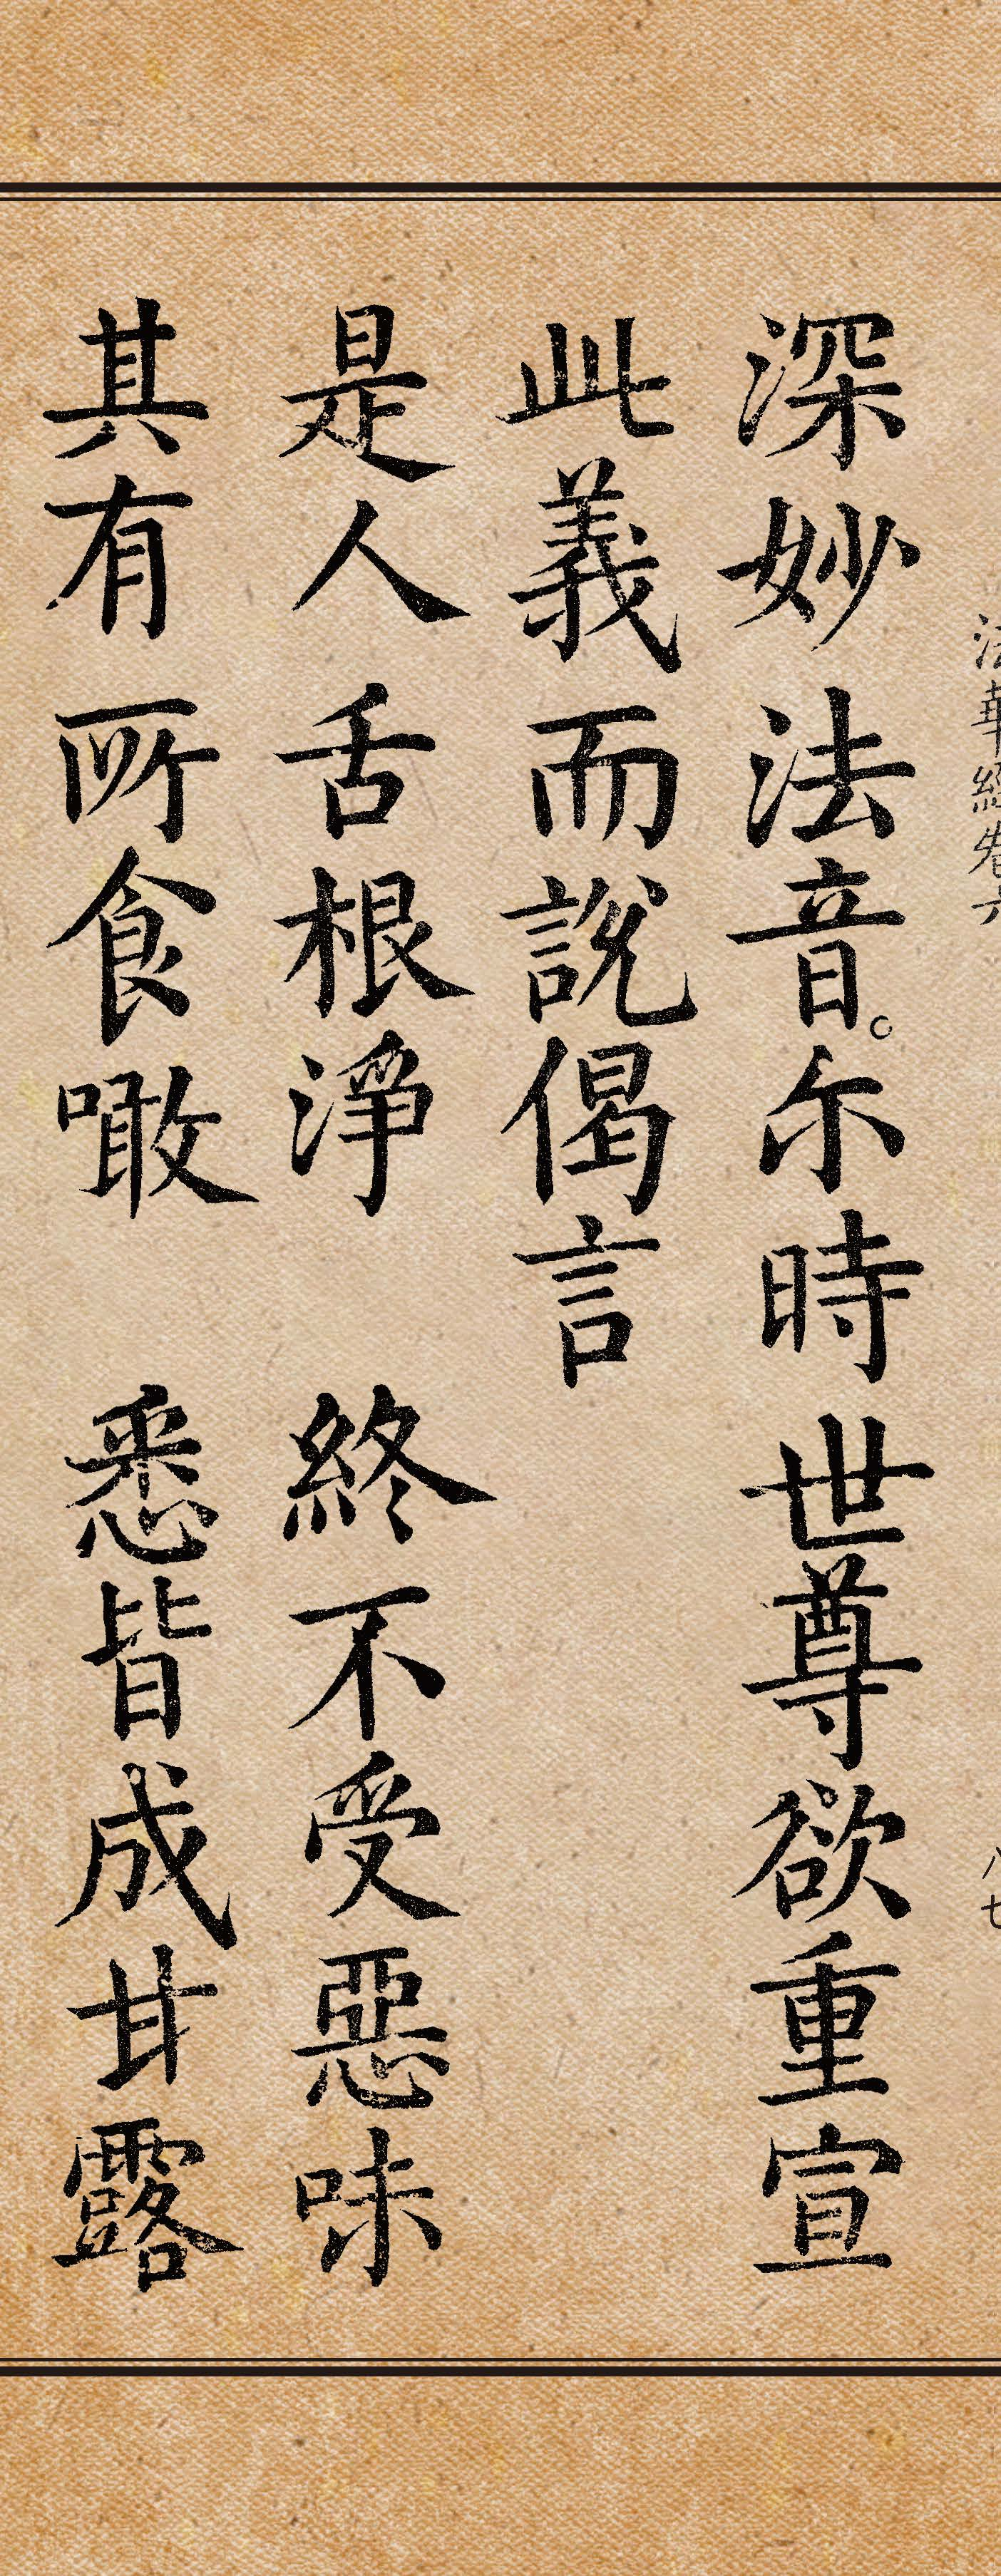 法華經卷六 八七
深妙法音。尔時世尊欲重宣
此義而說偈言
是人舌根淨 終不受惡味
其有所食噉 悉皆成甘露